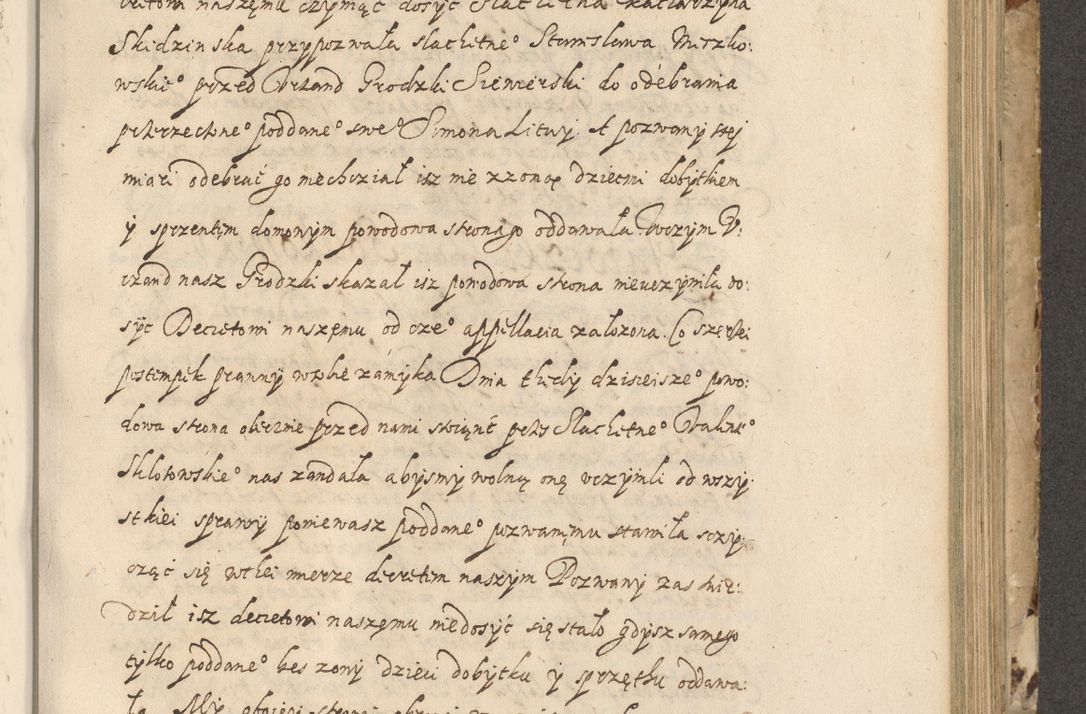 cretom naszęmu czyniąc dosyc Slachetna Katharzyna
Skidzinska przypozwała slachetne° Stanisława Mirzko:
wskie° przed Vrzand Grodzki Siewierski do odebrania
przerzeczone° poddane° swe° Simona Litwy. A pozwany stey
miari odebrać go niechcział isz nie z zoną dziecmi dobytkiem
ÿ sprzentęm domowym powodowa strona go oddawała. Wczym V:
rzand nasz Grodzki skazał isz powodowa strona nieuczyniła do:
sÿc Decretowi naszęmu od cze° appellacia założona. Co szerzei
postempek prawny wsobie zamyka Dnia thedy dzisieisze° powo:
dowa strona oblicznie przed nami stoiąnć przes Slachetne° Walente°
Sklotowskie° nas zandała abysmy wolną onę vczynili od wszy:
stkiei sprawy poniewasz poddane° pozwanęmu stawiła sczy:
cząć się wthei mierze decretem naszym Pozwany zas twier:
dził isz decretowi naszęmu niedosyć się stało gdysz samego
tylko poddane° bes zony dzieci dobytku ÿ sprzęthu oddawa:
ła My oboiei strony